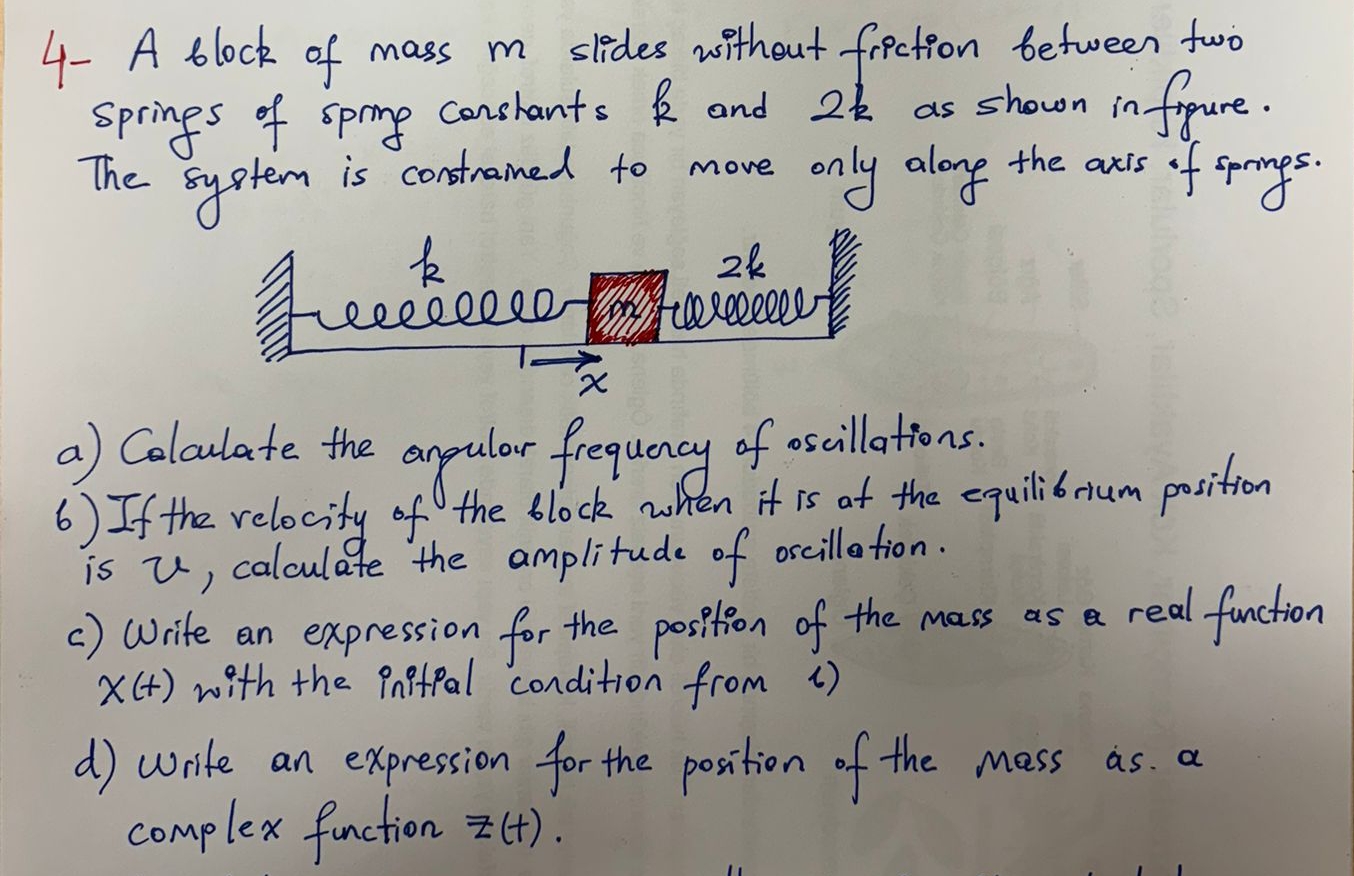 4- A block of mass m slides without friction between two
springs of spring constants k and 2k as shown in figure.
The system is constrained to move only along the axis of springs.
k
2k
m
x
a) Calculate the angular frequency of oscillations.
b) If the velocity of the block when it is at the equilibrium position
is v, calculate the amplitude of oscillation.
c) Write an expression for the position of the mass as a real function
x(t) with the initial condition from b)
d) Write an expression for the position of the mass as. a
complex function z(t).